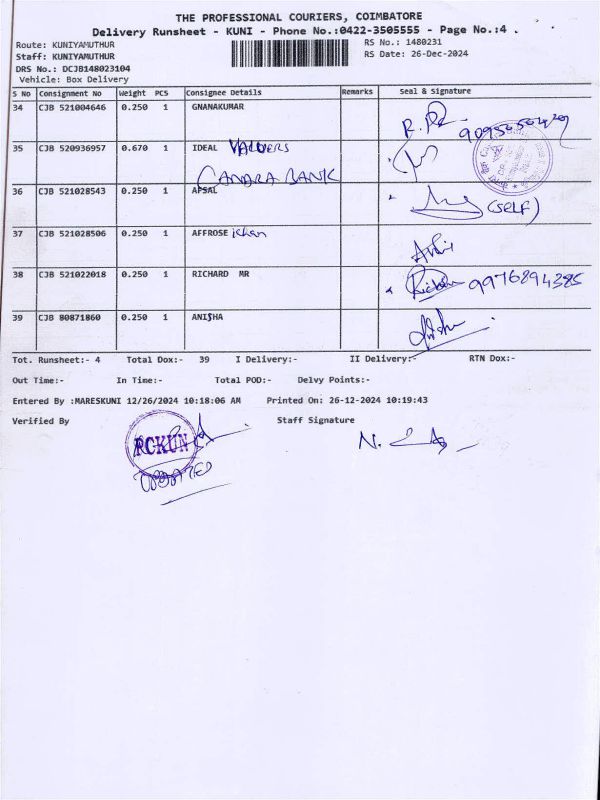 THE PROFESSIONAL COURIERS, COIMBATORE
Delivery Runsheet - KUNI - Phone No.:0422-3505555 - Page No.:4 .
Route: KUNIYAMUTHUR RS No.: 1480231
Staff: KUNIYAMUTHUR RS Date: 26-Dec-2024
DRS No.: DCJB148023104
Vehicle: Box Delivery
S No Consignment No Weight PCS Consignee Details Remarks Seal & Signature
34 CJB 521004646 0.250 1 GNANAKUMAR
35 CJB 520936957 0.670 1 IDEAL VALUERS
CANARA BANK
36 CJB 521028543 0.250 1 AFSAL (SELF)
37 CJB 521028506 0.250 1 AFFROSE
38 CJB 521022018 0.250 1 RICHARD MR Richard 9976894385
39 CJB 80871860 0.250 1 ANISHA
Tot. Runsheet:- 4 Total Dox:- 39 I Delivery:- II Delivery:- RTN Dox:-
Out Time:- In Time:- Total POD:- Delvy Points:-
Entered By :MARESKUNI 12/26/2024 10:18:06 AM Printed On: 26-12-2024 10:19:43
Verified By Staff Signature
RCKUN
UPDATED